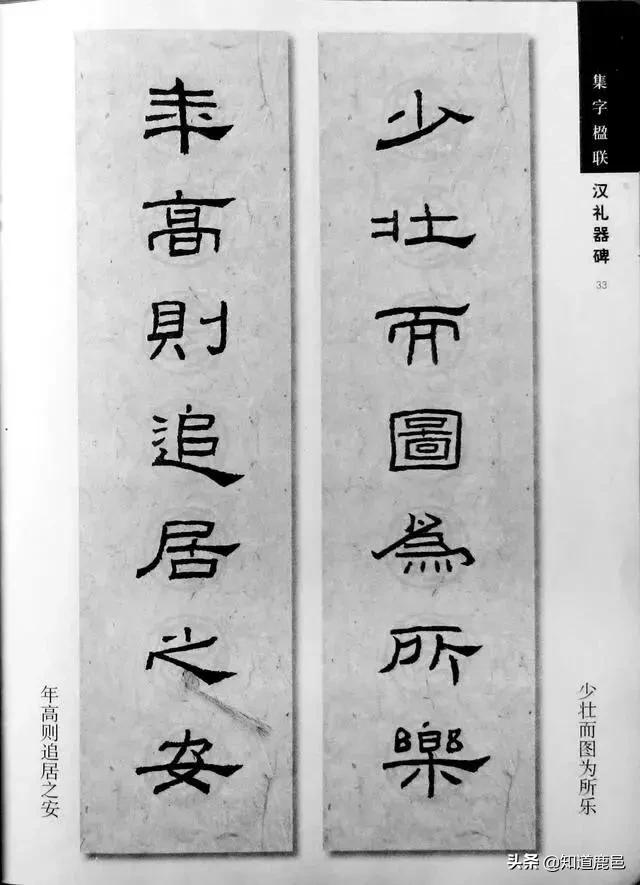 集字楹联
汉礼器碑
33
少壮而圖為所樂
少壮而图为所乐
年高則追居之安
年高则追居之安
头条 @知道鹿邑